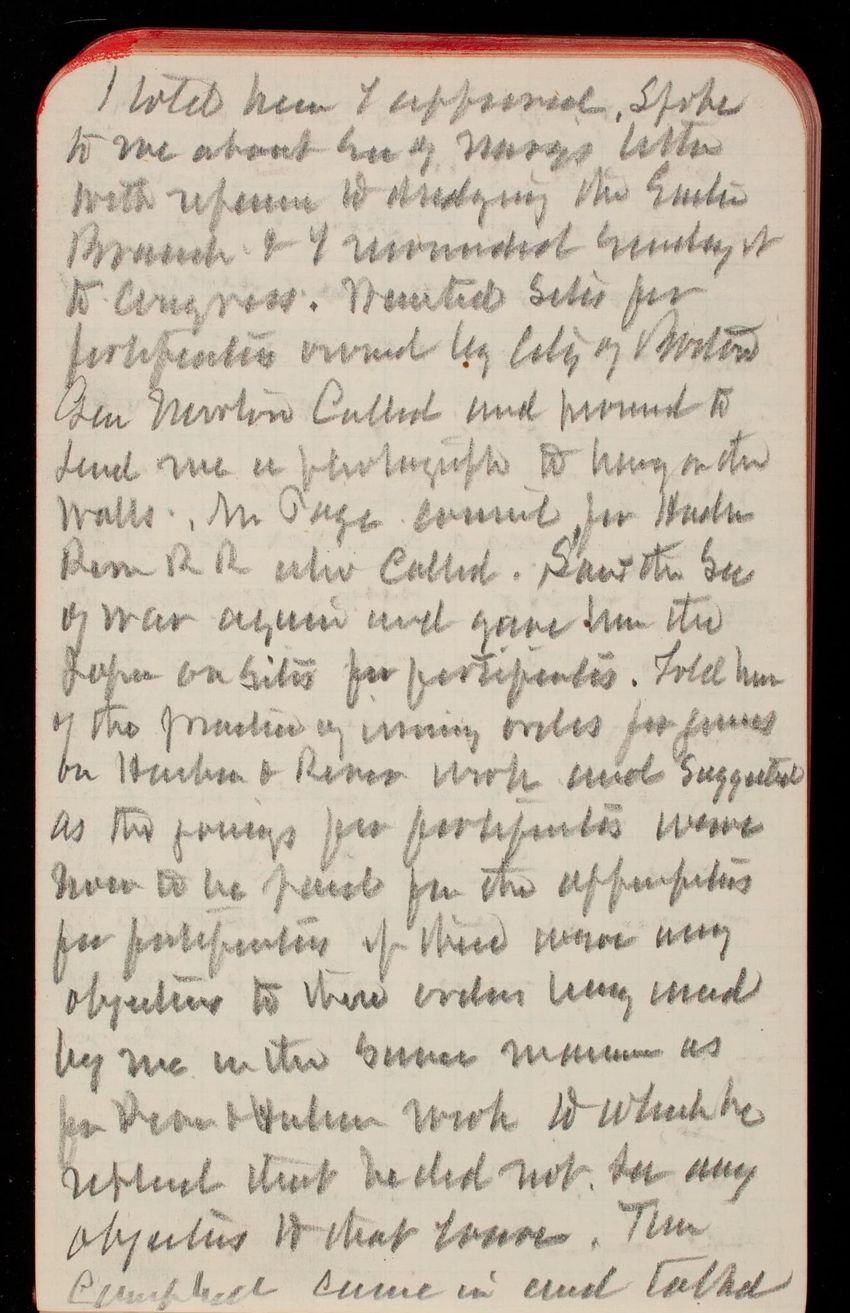 I told him I approved. Spoke
to me about Sec of Navy's letter
with reference to dredging the Eastern
Branch & I recommended sending it
to Congress. Wanted Sites for
fortification owned by City of Boston
Gen Newton Called and promised to
send me a photograph to hang on the
walls. Mr Page counsel for Hudson
River R R also Called. Saw the Sec
of War again and gave him the
paper on Sites for fortifications. Told him
of the practice of issuing orders for
on Harbor & River work and Suggested
as the for fortifications were
now to be paid for the appropriations
for fortifications if there were any
objections to these orders being made
by me in the same manner as
for River & Harbor work to which he
replied that he did not see any
objections to that course. Then
Campbell came in and talked